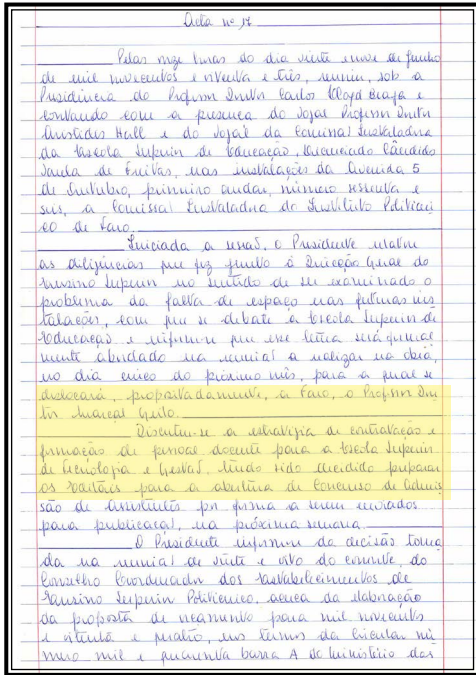 Acta nº 17
Pelas onze horas do dia vinte e nove de Junho
de mil novecentos e oitenta e três, reuniu, sob a
Presidência do Professor Doutor Carlos Lloyd Braga e
contando com a presença do Vogal Professor Doutor
Aristides Hall e do Vogal da Comissão Instaladora
da Escola Superior de Educação, Licenciado Cândido
Varela de Freitas, nas instalações da Avenida 5
de Outubro, primeiro andar, número sessenta e
seis, a Comissão Instaladora do Instituto Politécni
co de Faro.
Iniciada a sessão, o Presidente relatou
as diligências que fez junto à Direcção Geral do
Ensino Superior no sentido de ser examinado o
problema da falta de espaço nas futuras ins
talações, com que se debate a Escola Superior de
Educação e informou que esse tema será igual
mente abordado na reunião a realizar na
no dia cinco do próximo mês, para a qual se
deslocará, propositadamente, a Faro, o Professor Dou
tor Marçal Grilo.
Discutiu-se a estratégia de contratação e
formação de pessoal docente para a Escola Superior
de Tecnologia e Gestão, tendo sido decidido preparar
os Editais para a abertura de Concurso de admis
são de Assistentes por forma a serem enviados
para publicação, na próxima semana.
O Presidente informou da decisão toma
da na reunião de vinte e oito do corrente, do
Conselho Coordenador dos Estabelecimentos de
Ensino Superior Politécnico, acerca da elaboração
da proposta de orçamento para mil novecentos
e oitenta e quatro, nos termos da Circular nú
mero mil e quarenta barra A do Ministério das